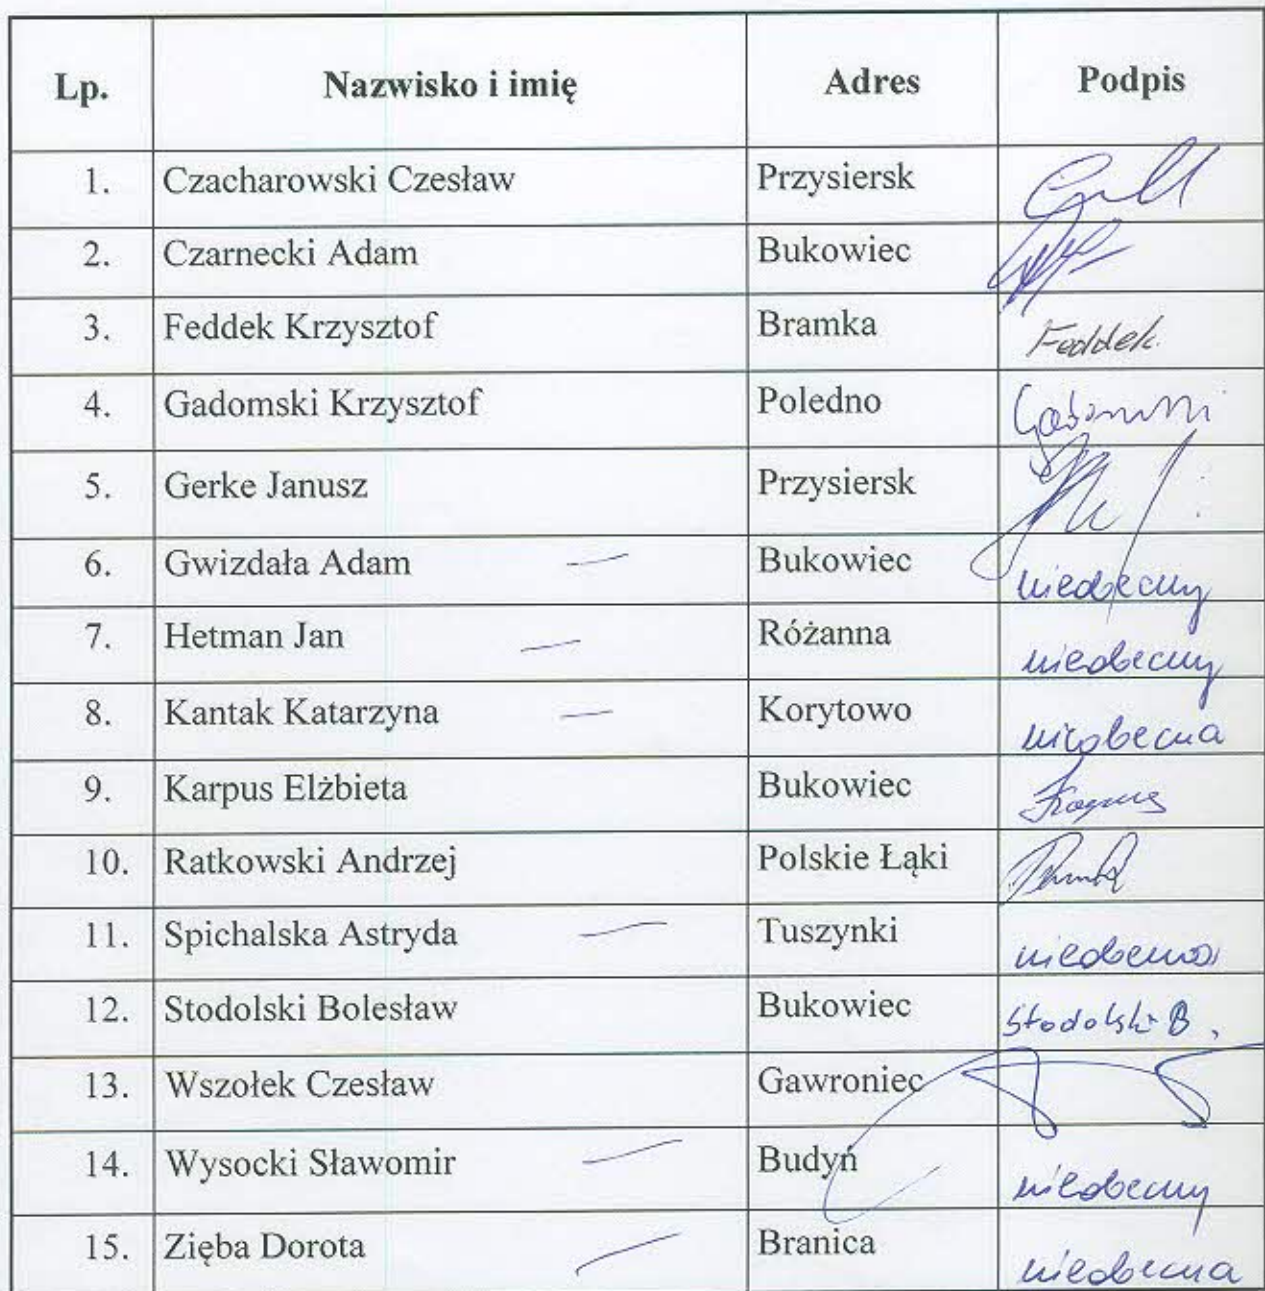 Lp. Nazwisko i imię Adres Podpis
1. Czacharowski Czesław Przysiersk
2. Czarnecki Adam Bukowiec
3. Feddek Krzysztof Bramka Feddek.
4. Gadomski Krzysztof Poledno Gadomski
5. Gerke Janusz Przysiersk
6. Gwizdała Adam — Bukowiec nieobecny
7. Hetman Jan — Różanna nieobecny
8. Kantak Katarzyna — Korytowo nieobecna
9. Karpus Elżbieta Bukowiec Karpus
10. Ratkowski Andrzej Polskie Łąki
11. Spichalska Astryda — Tuszynki nieobecna
12. Stodolski Bolesław Bukowiec Stodolski B.
13. Wszołek Czesław Gawroniec
14. Wysocki Sławomir — Budyń nieobecny
15. Zięba Dorota — Branica nieobecna